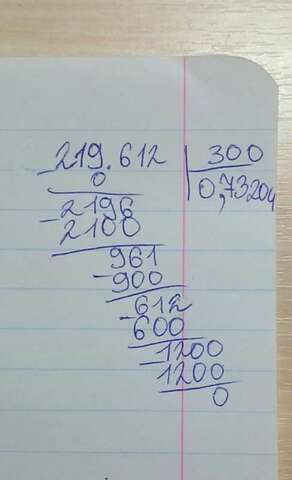 219.612 300
0 0,73204
2196
2100
961
900
612
600
1200
1200
0